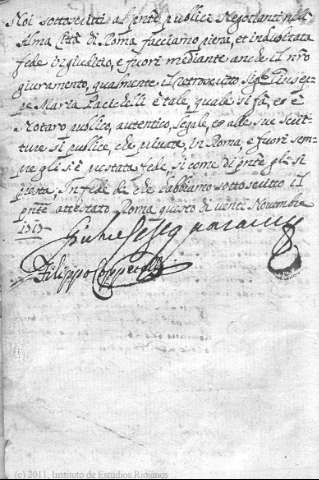 Noi sottoscritti al pnte publici Negotianti nell
Alma Città di Roma facciamo piena, et indubitata
fede in giuditio, e fuori mediante anche il nro
giuramento, qualmente il retroscritto Sigr. Giusep-
pe Maria Pacichelli è tale, quale si fà, et è
Notaro publico, autentico, legale, et alle sue Scrit-
ture sì publice, che private in Roma, e fuori sem-
pre gli s'è prestata fede, si come di pnte gli si
presta, In fede &c che habbiamo sottoscritto il
pnte attestato Roma questo dì venti Novembre
1717
Filippo
(c) 2011, Instituto de Estudios Riojanos